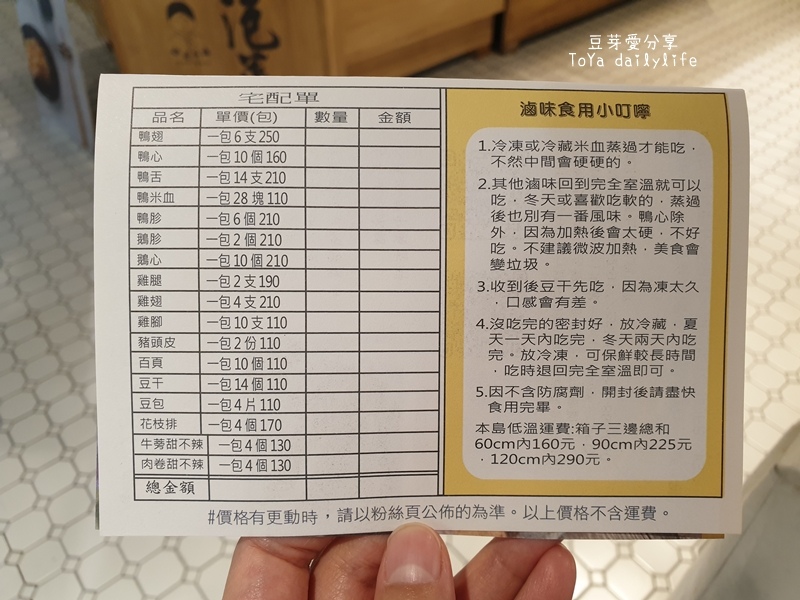 豆芽愛分享
ToYa dailylife
宅配單
品名 單價(包) 數量 金額
鴨翅 一包6支250
鴨心 一包10個160
鴨舌 一包14支210
鴨米血 一包28塊110
鴨胗 一包6個210
鵝胗 一包2個210
鵝心 一包10個210
雞腿 一包2支190
雞翅 一包4支210
雞腳 一包10支110
豬頭皮 一包2份110
百頁 一包10個110
豆干 一包14個110
豆包 一包4片110
花枝排 一包4個170
牛蒡甜不辣 一包4個130
肉卷甜不辣 一包4個130
總金額
滷味食用小叮嚀
1.冷凍或冷藏米血蒸過才能吃，
不然中間會硬硬的。
2.其他滷味回到完全室溫就可以
吃，冬天或喜歡吃軟的，蒸過
後也別有一番風味。鴨心除
外，因為加熱後會太硬，不好
吃。不建議微波加熱，美食會
變垃圾。
3.收到後豆干先吃，因為凍太久
，口感會有差。
4.沒吃完的密封好，放冷藏，夏
天一天內吃完，冬天兩天內吃
完。放冷凍，可保鮮較長時間
，吃時退回完全室溫即可。
5.因不含防腐劑，開封後請盡快
食用完畢。
本島低溫運費:箱子三邊總和
60cm內160元，90cm內225元
，120cm內290元。
#價格有更動時，請以粉絲頁公佈的為準。以上價格不含運費。